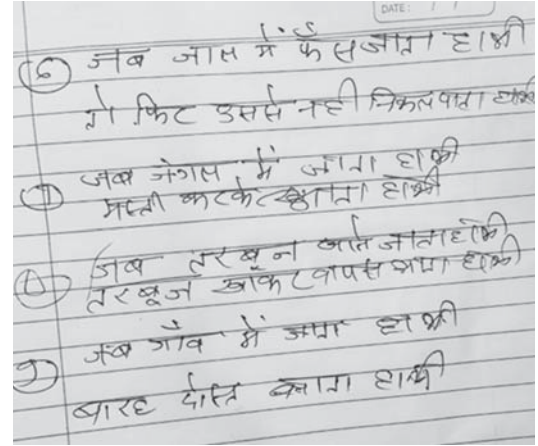 DATE: / /
⑥ जब जाल में फँस जाता हाथी
तो फिर उससे नही निकल पाता हाथी
⑦ जब जंगल में जाता हाथी
मस्ती करके आता हाथी
⑧ जब तरबूज खाने जाता हाथी
तरबूज खाकर वापस आता हाथी
⑨ जब गाँव में जाता हाथी
बारह दोस्त बनाता हाथी